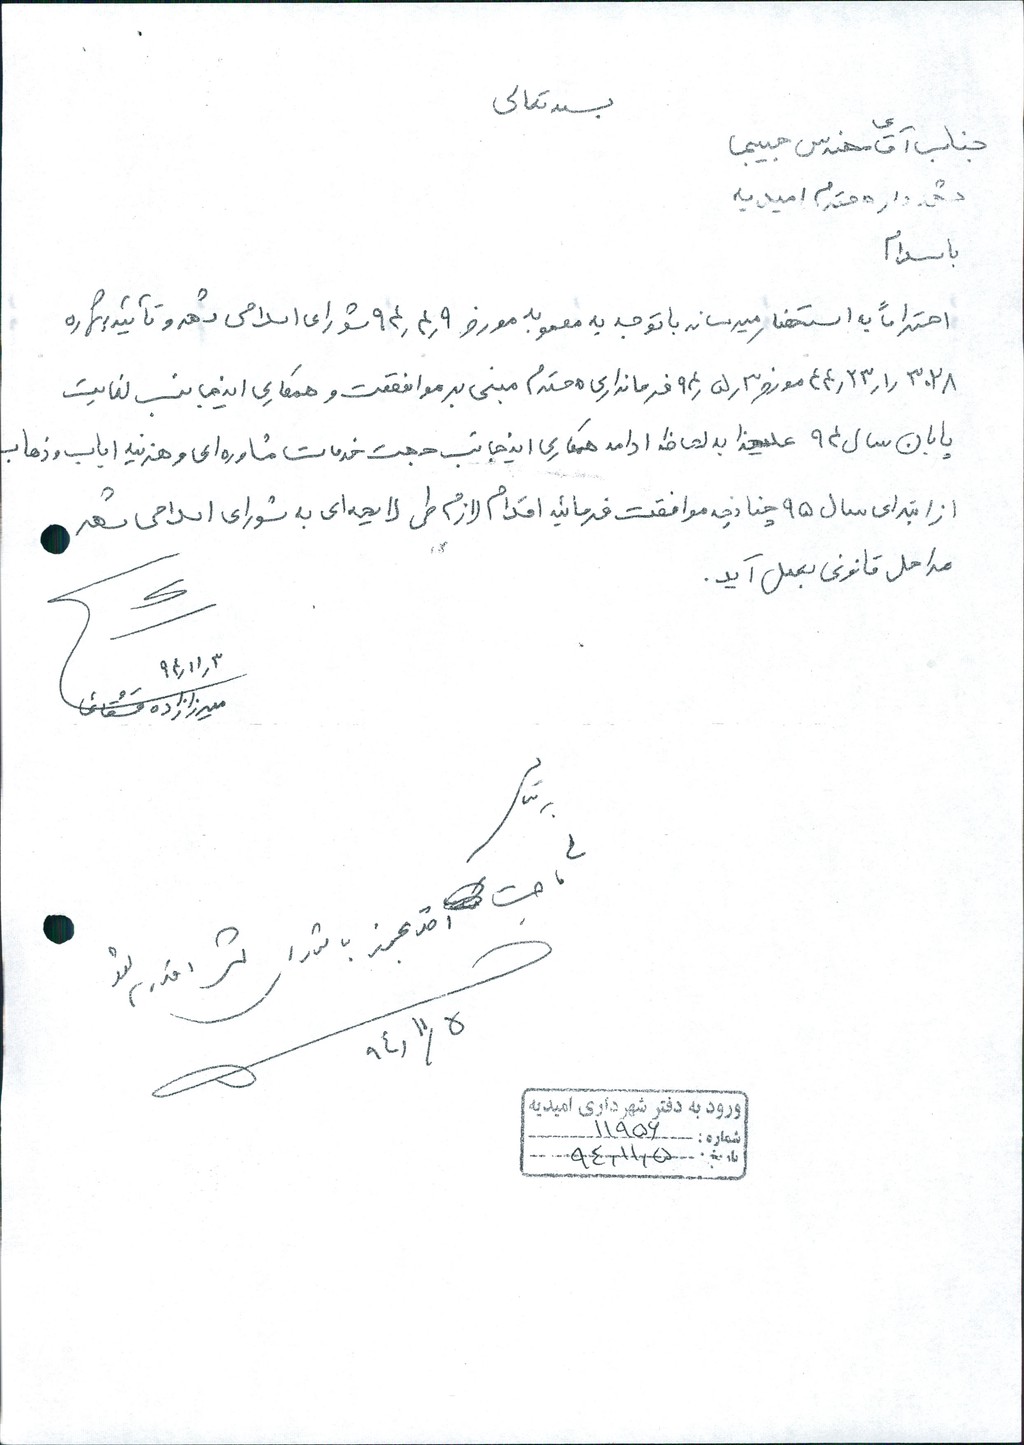 بسمه تعالی
جناب آقای مهندس
شهردار محترم امیدیه
باسلام
احتراماً به استحضار میرساند باتوجه به مصوبه مورخ ۹۴٫۴٫۹ شورای اسلامی شهر و تأئیدیه شماره
۳۰۲۸٫۱٫۲۳٫۴۴ مورخ ۹۴٫۵٫۳ فرمانداری محترم مبنی بر موافقت و همکاری اینجانب لغایت
پایان سال ۹۴ علیهذا به لحاظ ادامه همکاری اینجانب جهت خدمات مشاوره‌ای و هزینه ایاب و ذهاب
از ابتدای سال ۹۵ چنانچه موافقت فرمائید اقدام لازم طی لایحه‌ای به شورای اسلامی شهر
مراحل قانونی بعمل آید.
۹۴٫۱۱٫۳
میرزازاده قشقائی
با شورای شهر اقدام شود
۹۴٫۱۱٫۵
ورود به دفتر شهرداری امیدیه
شماره: ۱۱۹۵۶
تاریخ: ۹۴-۱۱-۵